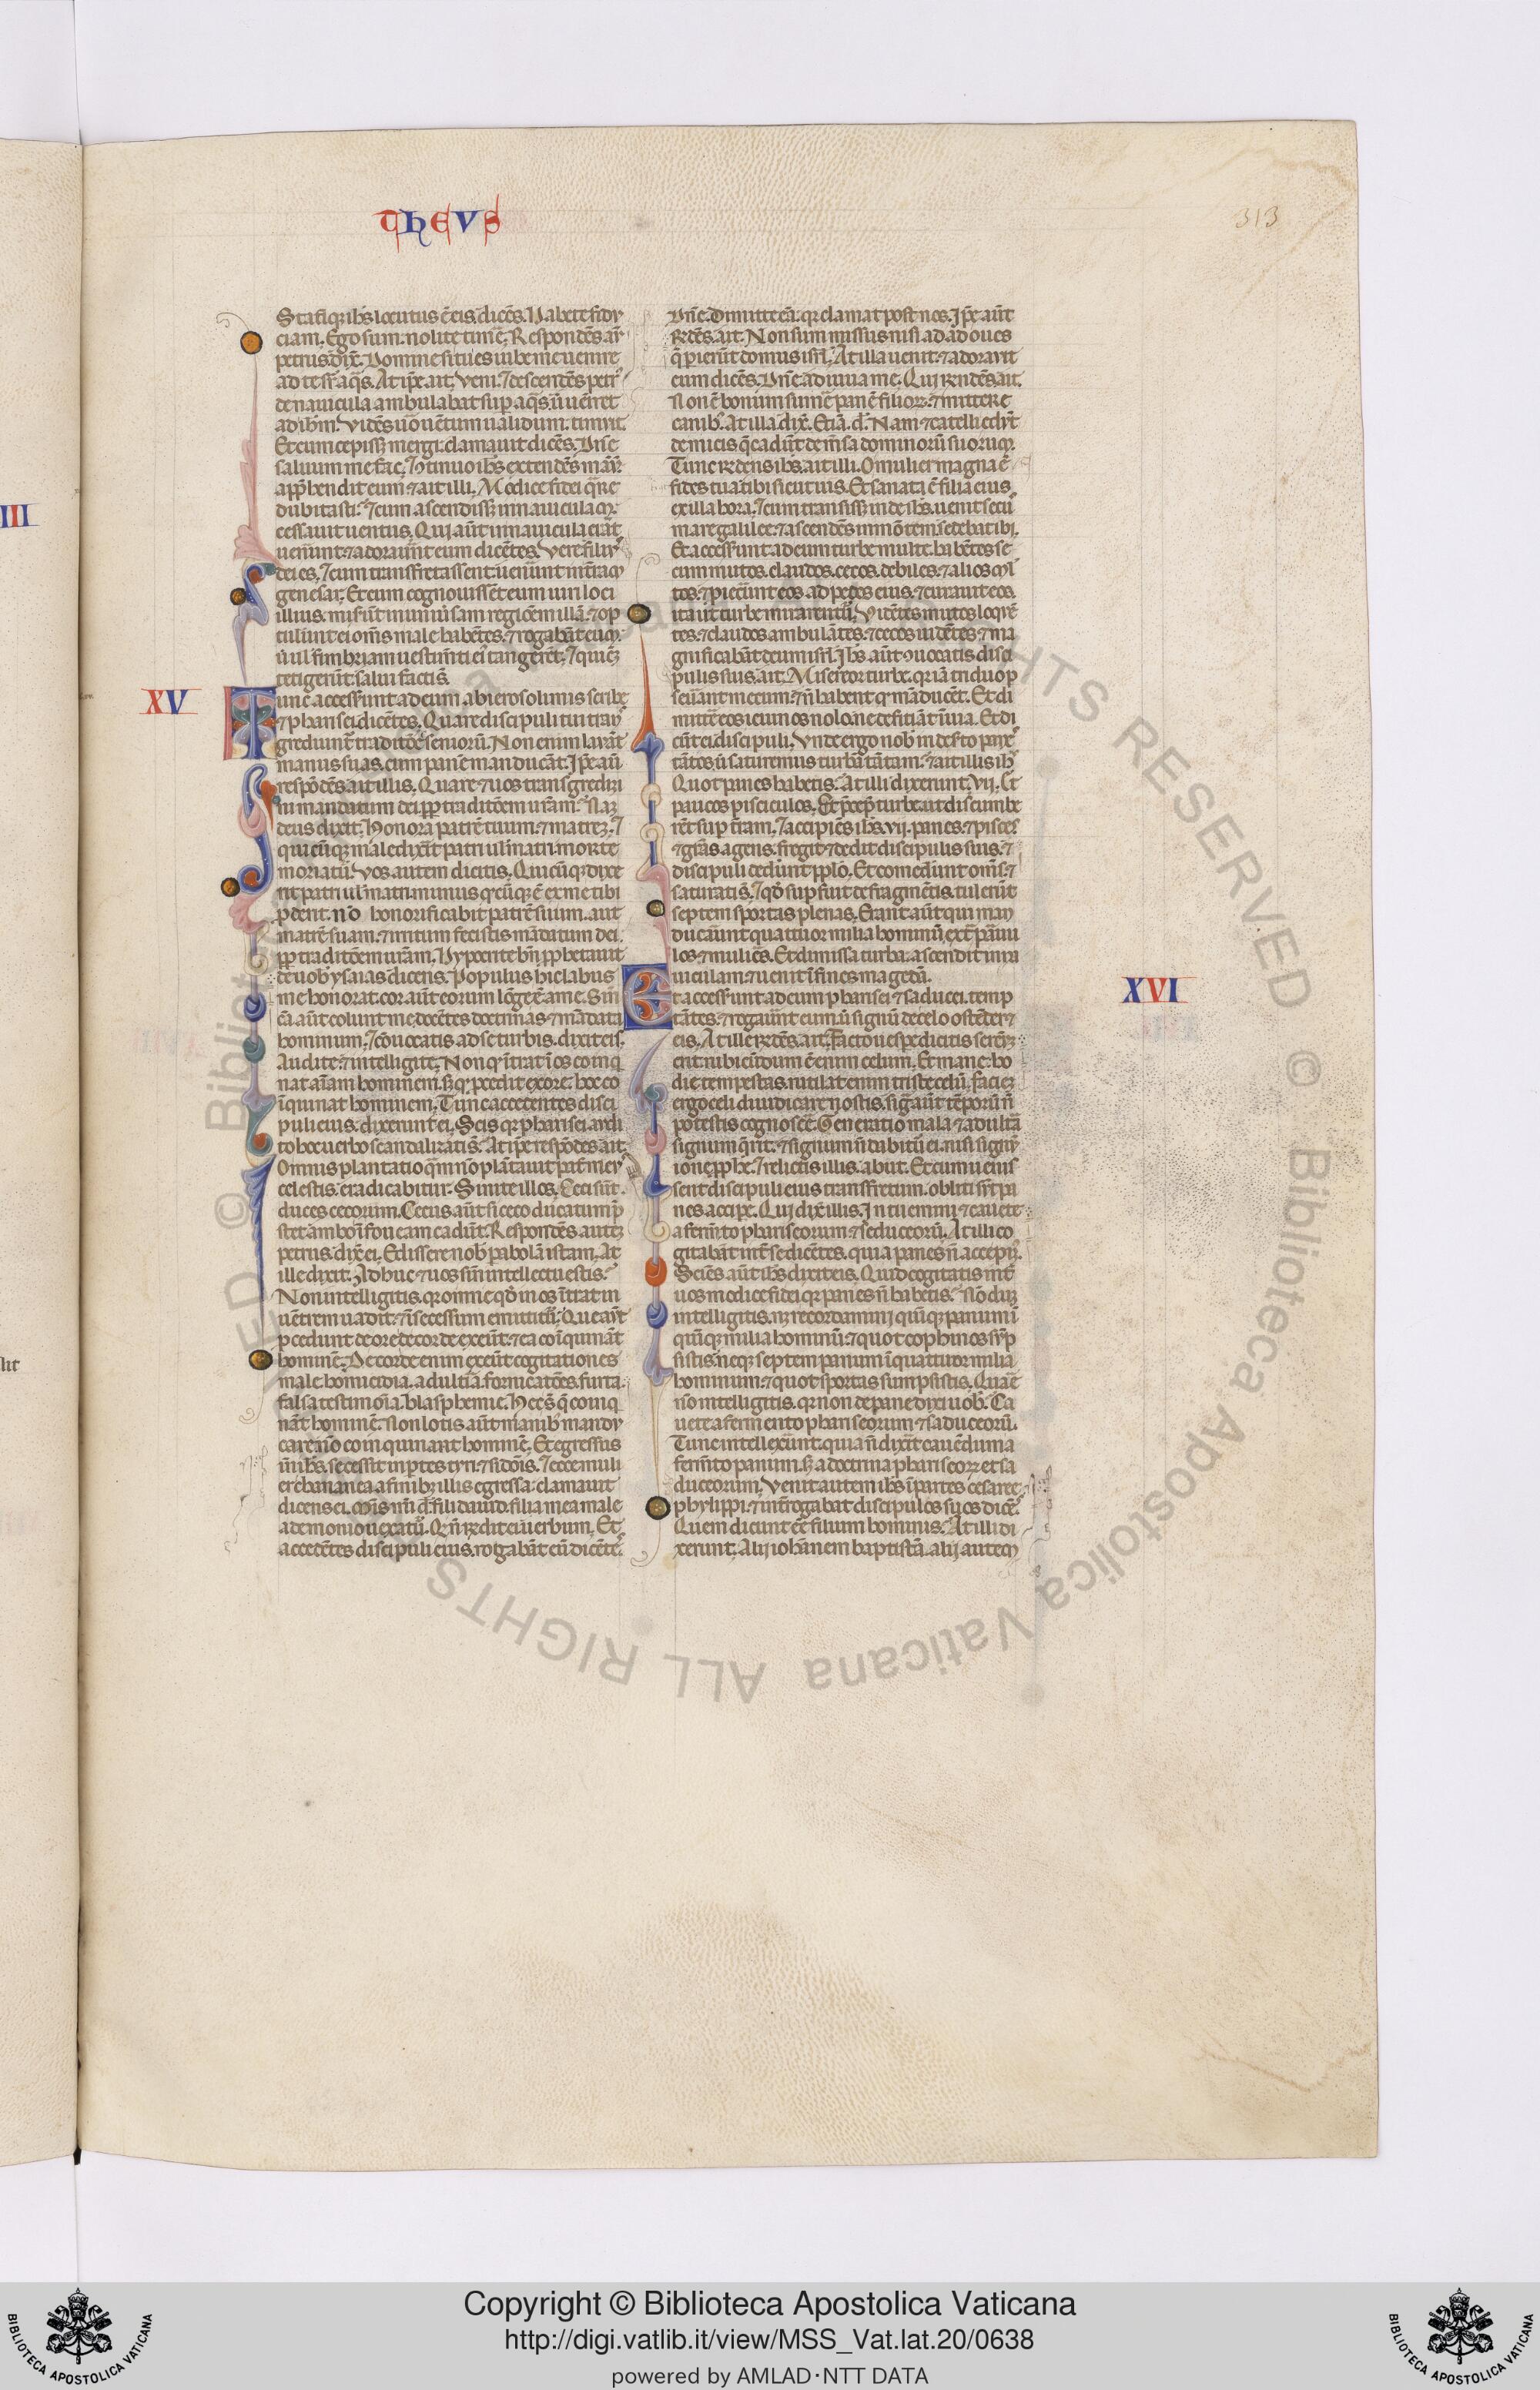 THEVS
313
Statimq; ihs locutus ē eis dicēs. Habete fidu
ciam. Ego sum. nolite timē̄. Respondēs aūt
petrus. dix̄. Domine si tu es iube me uenire
ad te sr̄ aq̄s. At ip̄e ait. Veni. ⁊ descendēs petr᷒
de nauicula ambulabat sup̄ aq̄s. ū uēiret
ad ihm̄. Vidēs uō uētum ualidum. timuit.
Et cum cepiss; mergi. clamauit dicēs. Dn̄e
saluum me fac. ⁊ ɔtinuo ihs extendēs manū
app̄hendit eum ⁊ ait illi. Modice fidei q̄re
dubitasti. ⁊ cum ascendiss; in nauiculam.
cessauit uentus. Qui aūt in nauicula erāt
uenerunt ⁊ adorauer̄t eum dicētes. Vere filius
dei es. ⁊ cum transfretassent uenerunt in t̄ram
genesar. Et cum cognouissēt eum uiri loci
illius. miser̄t in uniū̄sam regiōem illā. ⁊ op
tuler̄unt ei om̄s male habētes. ⁊ rogabāt eum.
ū ul̄ fimbriam uestim̄ti ei᷒ tangerēt. ⁊ quicūq;
tetiger̄t salui facti s̄.
XV
Tunc accesser̄unt ad eum ab ierosolimis scribe
⁊ pharisei dicētes. Quare discipuli tui trans
grediunt̄ traditōē seniorū. Non enim lauāt
manus suas. cum panē manducāt. Ip̄e aūt
respōdēs ait illis. Quare ⁊ uos transgredimi
ni mandatum dei pp̄ traditōem ur̄am. Naz
deus dixit. Honora patrē tuum. ⁊ matrez. ⁊
qui cūq; maledix̄it patri ul̄ matri morte
moriatur̄. Vos autem dicitis. Quicūq; dixe
rit patri ul̄ matri. munus q̄dcūq; ē ex me tibi
p̄derit. n̄o honorificabit patrē suum. aut
matrē suam. ⁊ irritum fecistis mādatum dei.
pp̄ traditōem ur̄am. Hypocrite bn̄ pp̄hetauit
de uob̄ ysaias dicens. Populus hic labiis
me honorat. cor aūt eorum lōge ē a me. Sin̄
cā aūt colunt me. docētes doctrinas ⁊ mādata
hominum. ⁊ cōuocatis ad se turbis. dixit eis.
Audite ⁊ intelligite. Non q̄d ītrat ī os coinq
nat aīam hominem. s; q̄d p̄cedit ex ore. hoc co
ī̄quinat hominem. Tunc accedentes disci
puli eius. dixerunt ei. Scis q̄r pharisei audi
to hoc uerbo scandalizati s̄. At ip̄e respōdēs ait.
Omnis plantatio q̄m n̄o plātauit pat̄ meus
celestis. eradicabitur. Sinite illos. Ceci sūt.
duces cecorum. Cecus aūt si ceco ducatum p̄
stet. ambo ī foueam cadūt. Respondēs autez
petrus. dix̄ ei. Edissere nob̄ p̄abolā istam. At
ille dixit. Adhuc ⁊ uos sin̄ intellectu estis.
Non intelligitis. q̄r omne qd̄ in os ītrat in
uētrem uadit. ⁊ ī secessum emittitur̄. Que aūt
p̄cedunt de ore. de corde exeūt. ⁊ ea coīquināt
hominē. De corde enim exeūt cogitationes
male. homicidia. adult̄ia. fornicatōes. furta.
falsa testimōia. blasphemie. Hec s̄ q̄ coinq
nāt hominē. Non lotis aūt manib᷒ mandu
care. n̄o coinquinant hominē. Et egressus
in̄ ihs. secessit in p̄tes tyri. ⁊ sidōis. ⁊ ecce muli
er chananea a finib᷒ illis egressa. clamauit
dicens ei. Mis̄ m̄i dn̄e fili dauid. filia mea male
a demonio uexatur̄. Q̄ n̄ r̄ndit ei uerbum. Et
accedētes discipuli eius. rogabāt eū dicētes
Dn̄e. Dimitte eā. q̄r clamat post nos. Ip̄e aūt
r̄ndēs. ait. Non sum missus nisi ad ad oues
q̄ perier̄t domus isr̄l. At illa uenit. ⁊ adorauit
eum dicēs. Dn̄e adiuua me. Qui r̄ndēs ait.
Non ē bonum sumē panē filioꝝ. ⁊ mittere
canib᷒. At illa dix̄. Etiā. d̄. Nam ⁊ catelli edūt
de micis q̄ cadūt de m̄sa dominorū suorum.
Tunc r̄ndens ihs. ait illi. O mulier magna ē
fides tua. tibi sicut uis. Et sanata ē filia eius
ex illa hora. ⁊ cum transiss; inde ihs. uenit secus
mare galilee. ⁊ ascendēs in mōtem. sedebat ibi.
Et accesser̄unt ad eum turbe multe. habētes se
cum mutos. claudos. cecos. debiles. ⁊ alios mul
tos. ⁊ p̄iecer̄unt eos ad pedes eius. ⁊ curauit eos
ita ut turbe mirarentur̄. Vidētes mutos loquē
tes. ⁊ claudos ambulātes. ⁊ cecos uidētes. ⁊ ma
gnificabāt deum isr̄l. Ihs aūt ɔuocatis disci
pulis suis. ait. Misereor turbe. q̄r iā triduo p
seuerant mecum. ⁊ n̄ habent q̄d māducēt. Et di
mittē eos ieiunos nolo. ne deficiāt ī uia. Et di
cūt ei discipuli. Vnde ergo nob̄ in deserto panes
tātos. ū saturemus turbā tātam. ⁊ ait illis ihs
Quot panes habetis. At illi dixerunt. vii. Et
paucos pisciculos. Et p̄cep̄ turbe. ut discumbe
rēt sup̄ t̄ram. ⁊ accipiēs ihs. vii. panes. ⁊ pisces
⁊ gr̄as agens. fregit. ⁊ dedit discipulis suis. ⁊
discipuli deder̄unt pp̄lo. Et comeder̄unt om̄s. ⁊
saturati s̄. ⁊ qd̄ sup̄fuit de fragmētis. tuler̄t
septem sportas plenas. Erant aūt qui man
ducauer̄unt quattuor milia hominū. ext̄ paruu
los. ⁊ mulieres. Et dimissa turba. ascendit in na
uiculam. ⁊ uenit ī fines magedā.
XVI
Et accesser̄unt ad eum pharisei ⁊ saducei. temp
tātes. ⁊ rogauer̄unt eum ū signū de celo ostēderet
eis. At ille r̄ndēs. ait. Facto uespe dicitis. serenū
erit. rubicūdum ē enim celum. Et mane. ho
die tempestas. rutilat enim triste celū. faciez
ergo celi diiudicare nostis. siḡ aūt tēporū n̄
potestis cognoscē. Generatio mala ⁊ adultā
signum q̄rit. ⁊ signum n̄ dabitur̄ ei. nisi signum
ione pp̄he. ⁊ relictis illis. abiit. Et cum uenis
sent discipuli eius trans fretum. obliti sūt pa
nes accip̄e. Qui dix̄ illis. Intuemini ⁊ cauete
a ferm̄to phariseorum ⁊ seduceorū. At illi co
gitabāt int̄ se dicētes. quia panes n̄ accepim᷒.
Sciēs aūt ihs. dixit eis. Quid cogitatis int̄
uos modice fidei q̄r panes n̄ habetis. Nōduz
intelligitis. nq; recordamini quinq; panum ī
quinq; milia hominū. ⁊ quot cophinos sūp
sistis. neq; septem panum ī quattuor milia
hominum. ⁊ quot sportas sumpsistis. Quare
n̄o intelligitis. q̄r non de pane dixi uob̄. Ca
uete a fermento phariseorum ⁊ saduceorū.
Tunc intellexer̄unt. quia n̄ dix̄it cauēdum a
ferm̄to panum. s; a doctrina phariseoꝝ et sa
duceorum. Venit autem ihs ī partes cesaree
phylippi. ⁊ int̄rogabat discipulos suos dicēs.
Quem dicunt eē filium hominis. At illi di
xerunt. Alij iohānem baptistā. alij autem
Copyright © Biblioteca Apostolica Vaticana
http://digi.vatlib.it/view/MSS_Vat.lat.20/0638
powered by AMLAD·NTT DATA
BIBLIOTECA APOSTOLICA VATICANA
BIBLIOTECA APOSTOLICA VATICANA
© Biblioteca Apostolica Vaticana ALL RIGHTS RESERVED
III